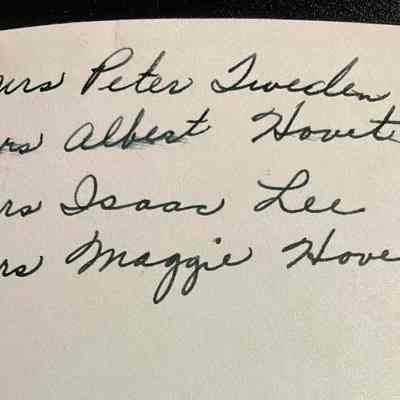 urs Peter Tweden
rs Albert Hovet
rs Isaac Lee
rs Maggie Hove